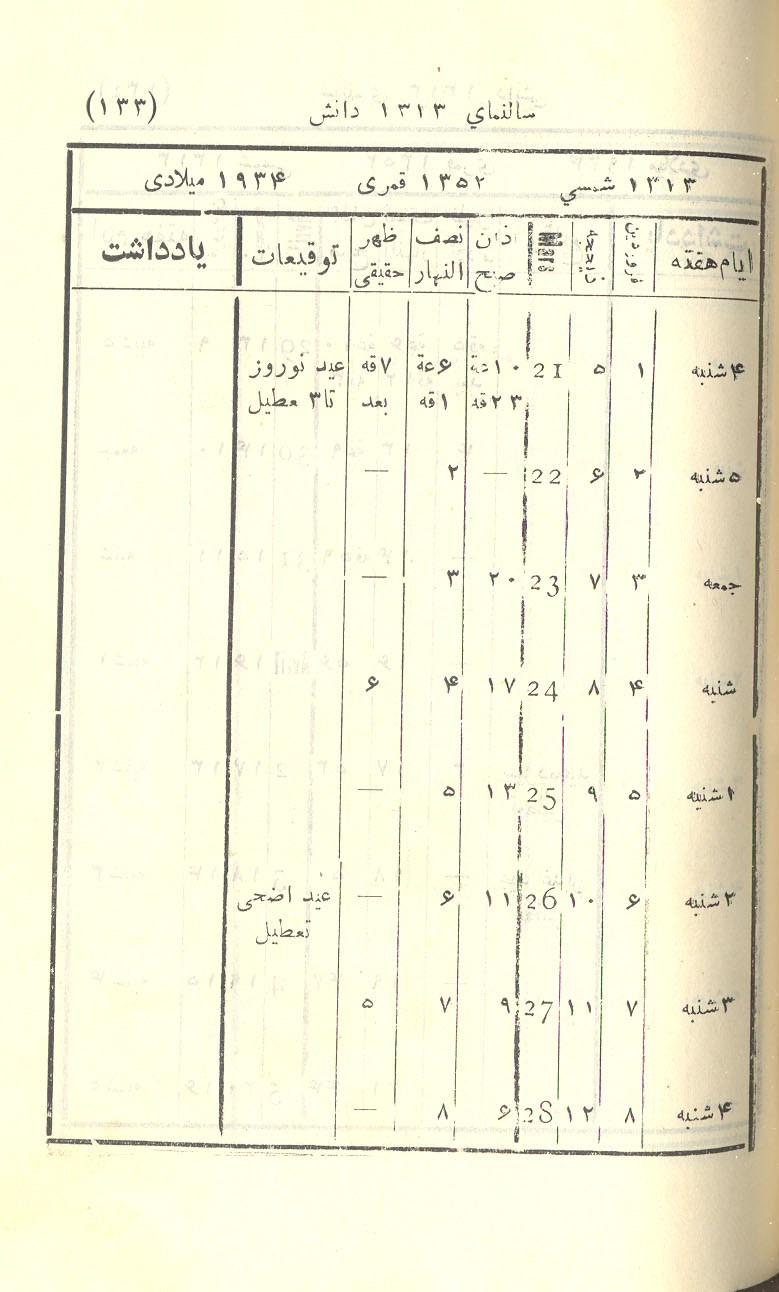 سالنمای ۱۳۱۳ دانش (۱۳۳)
۱۳۱۳ شمسي ۱۳۵۲ قمری ۱۹۳۴ میلادی
ایام هفته فروردین ذیحجه Mars ذان صبح نصف النهار ظهر حقیقی توقیعات یادداشت
۴شنبه ۱ ۵ 21 ۱۰عة ۶عة ۷قه عید نوروز
۲۳قه ۱قه بعد تا۳ عطیل
۵شنبه ۲ ۶ 22 — ۲ —
جمعه ۳ ۷ 23 ۲۰ ۳ —
شنبه ۴ ۸ 24 ۱۷ ۴ ۶
۱شنبه ۵ ۹ 25 ۱۳ ۵ —
۲شنبه ۶ ۱۰ 26 ۱۱ ۶ — عید اضحی
تعطیل
۳شنبه ۷ ۱۱ 27 ۹ ۷ ۵
۴شنبه ۸ ۱۲ 28 ۶ ۸ —